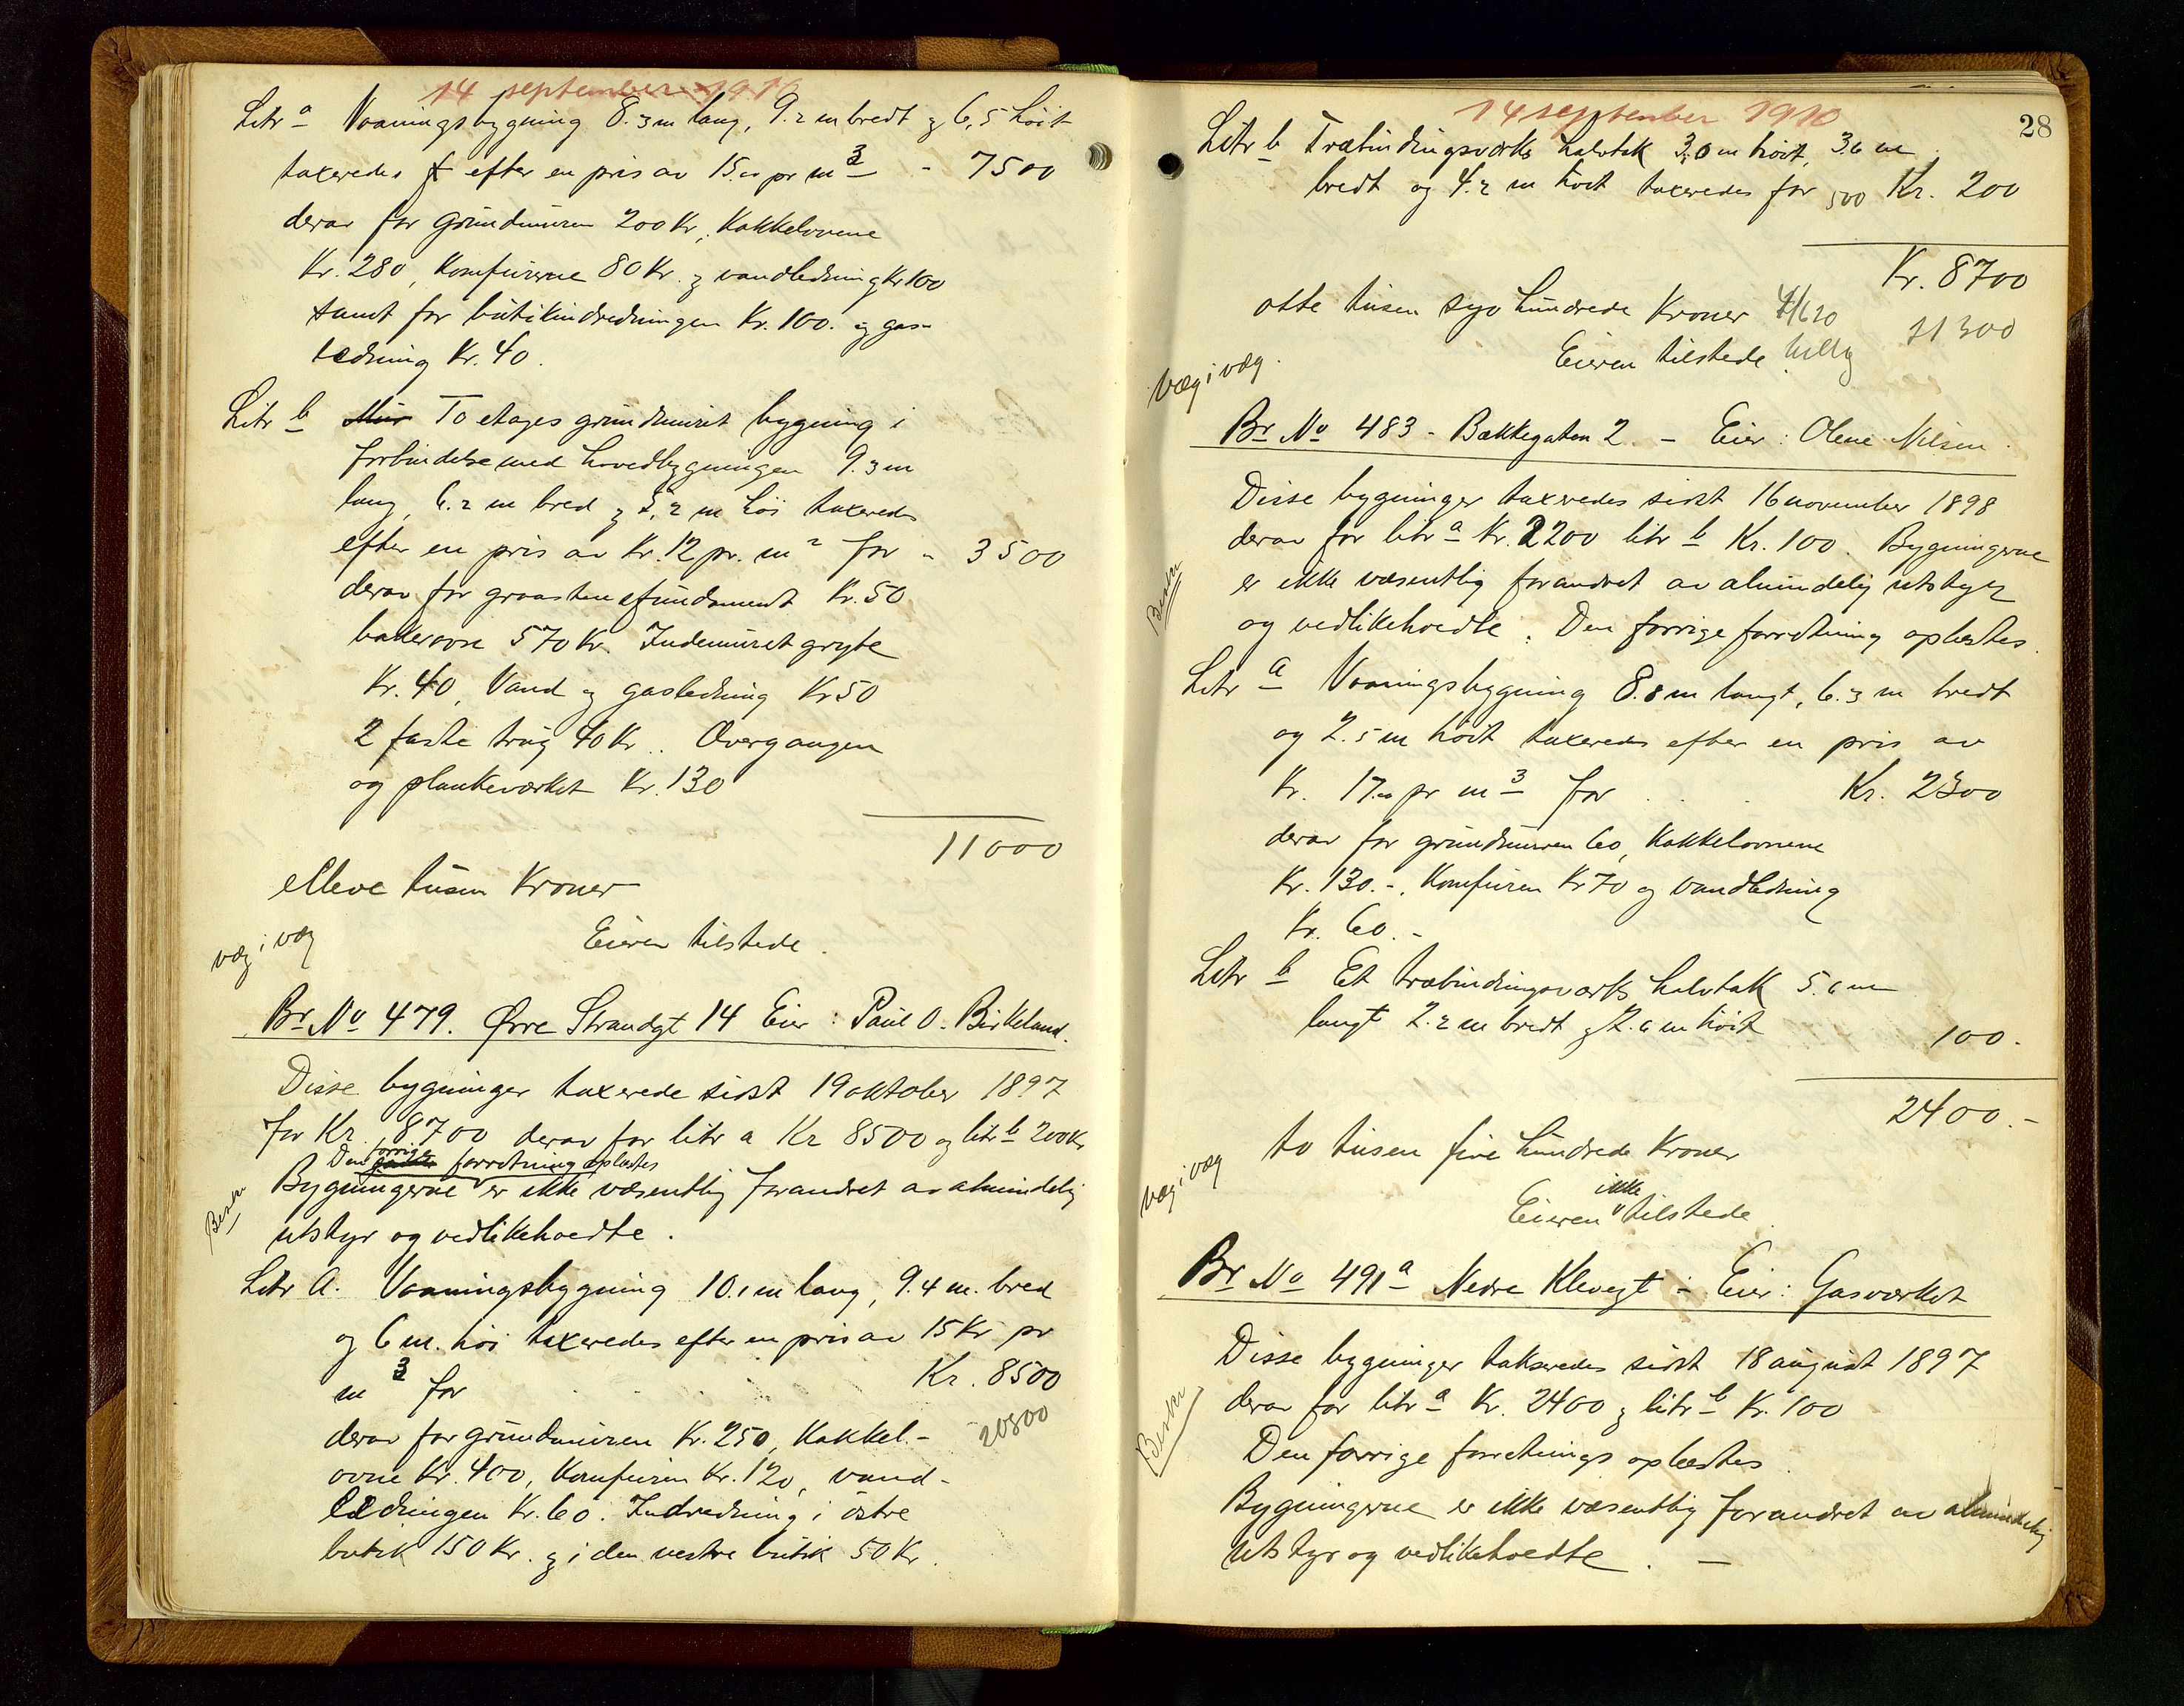 14 september 1910
Litr a Vaaningsbygning 8.3 m lang, 9.2 m bredt og 6,5 höit
taxeredes f efter en pris av 15.00 pr m3 - 7500
derav for grundmuren 200 Kr, Kakkelovnene
Kr. 280, Komfurerne 80 Kr. og vandledning Kr 100
samt for butikindredningen Kr. 100. og gas-
ledning Kr. 40.
Litr b Mur To etages grundmuret bygning i
forbindelse med hovedbygningen 9.3 m
lang, 6.2 m bred og 5,2 m höi taxeredes
efter en pris av Kr. 12 pr. m2 for - 3500
derav for graastensfundament Kr. 50
bakerovn 570 Kr. Indemuret gryte
Kr. 40, Vand og gasledning Kr 50
2 faste trug 40 Kr. Overgangen
og plankeværket Kr. 130
11000
elleve tusen Kroner
Eieren tilstede.
væg i væg
Br No 479. Øvre Strandgt 14 Eier: Paul O. Birkeland.
Disse bygninger taxerede sidst 19 oktober 1897
for Kr. 8700 derav for litr a Kr 8500 og litr b 200 Kr
Den forrige forretning oplæstes
Bygningerne er ikke væsentlig forandret av almindelig
utstyr og vedlikeholdte.
Litr A. Vaaningsbygning 10.1 m lang, 9.4 m. bred
og 6 m. höi taxeredes efter en pris av 15 Kr pr
m3 for Kr. 8500
20500
derav for grundmuren Kr. 250, Kakkel-
ovne Kr. 400, Komfuren Kr. 120, vand-
ledningen Kr. 60. Indredning i östre
butik 150 Kr. og i den vestre butik 50 Kr.
14 september 1910
28
Litr b Træbindingsværks halvtak 3,0 m höit, 3.6 m
bredt og 4.2 m höit taxeredes for 500 Kr. 200
Kr. 8700
otte tusen syv hundrede Kroner 4/6 20 11300
Eieren tilstede
væg i væg.
Br No 483 - Bakkegaten 2. - Eier: Olene Nilsen.
Disse bygninger taxeredes sidst 16 november 1898
derav for litr a Kr. 2200 litr b Kr. 100. Bygningerne
er ikke væsentlig forandret av almindelig utstyr
og vedlikeholdte. Den forrige forretning oplæstes.
Litr a Vaaningsbygning 8.8 m langt, 6.3 m bredt
og 2.5 m höit taxeredes efter en pris av
Kr. 17.00 pr m3 for Kr. 2300
derav for grundmuren 60, Kakkelovnene
Kr. 130.-, Komfuren Kr 70 og vandledning
Kr. 60.-
Litr b Et træbindingsværks halvtak 5.6 m
langt 2.2 m bredt og 2.6 m höit 100.
2400.-
to tusen fire hundrede Kroner
Eieren ikke tilstede.
væg i væg
Br No 491a Nedre Klevegt - Eier: Gasværket
Disse bygninger takseredes sidst 18 august 1897
derav for litr a Kr. 2400 og litr b Kr. 100
Den forrige forretnings oplæstes.
Bygningerne er ikke væsentlig forandret av almindelig
utstyr og vedlikeholdte. -